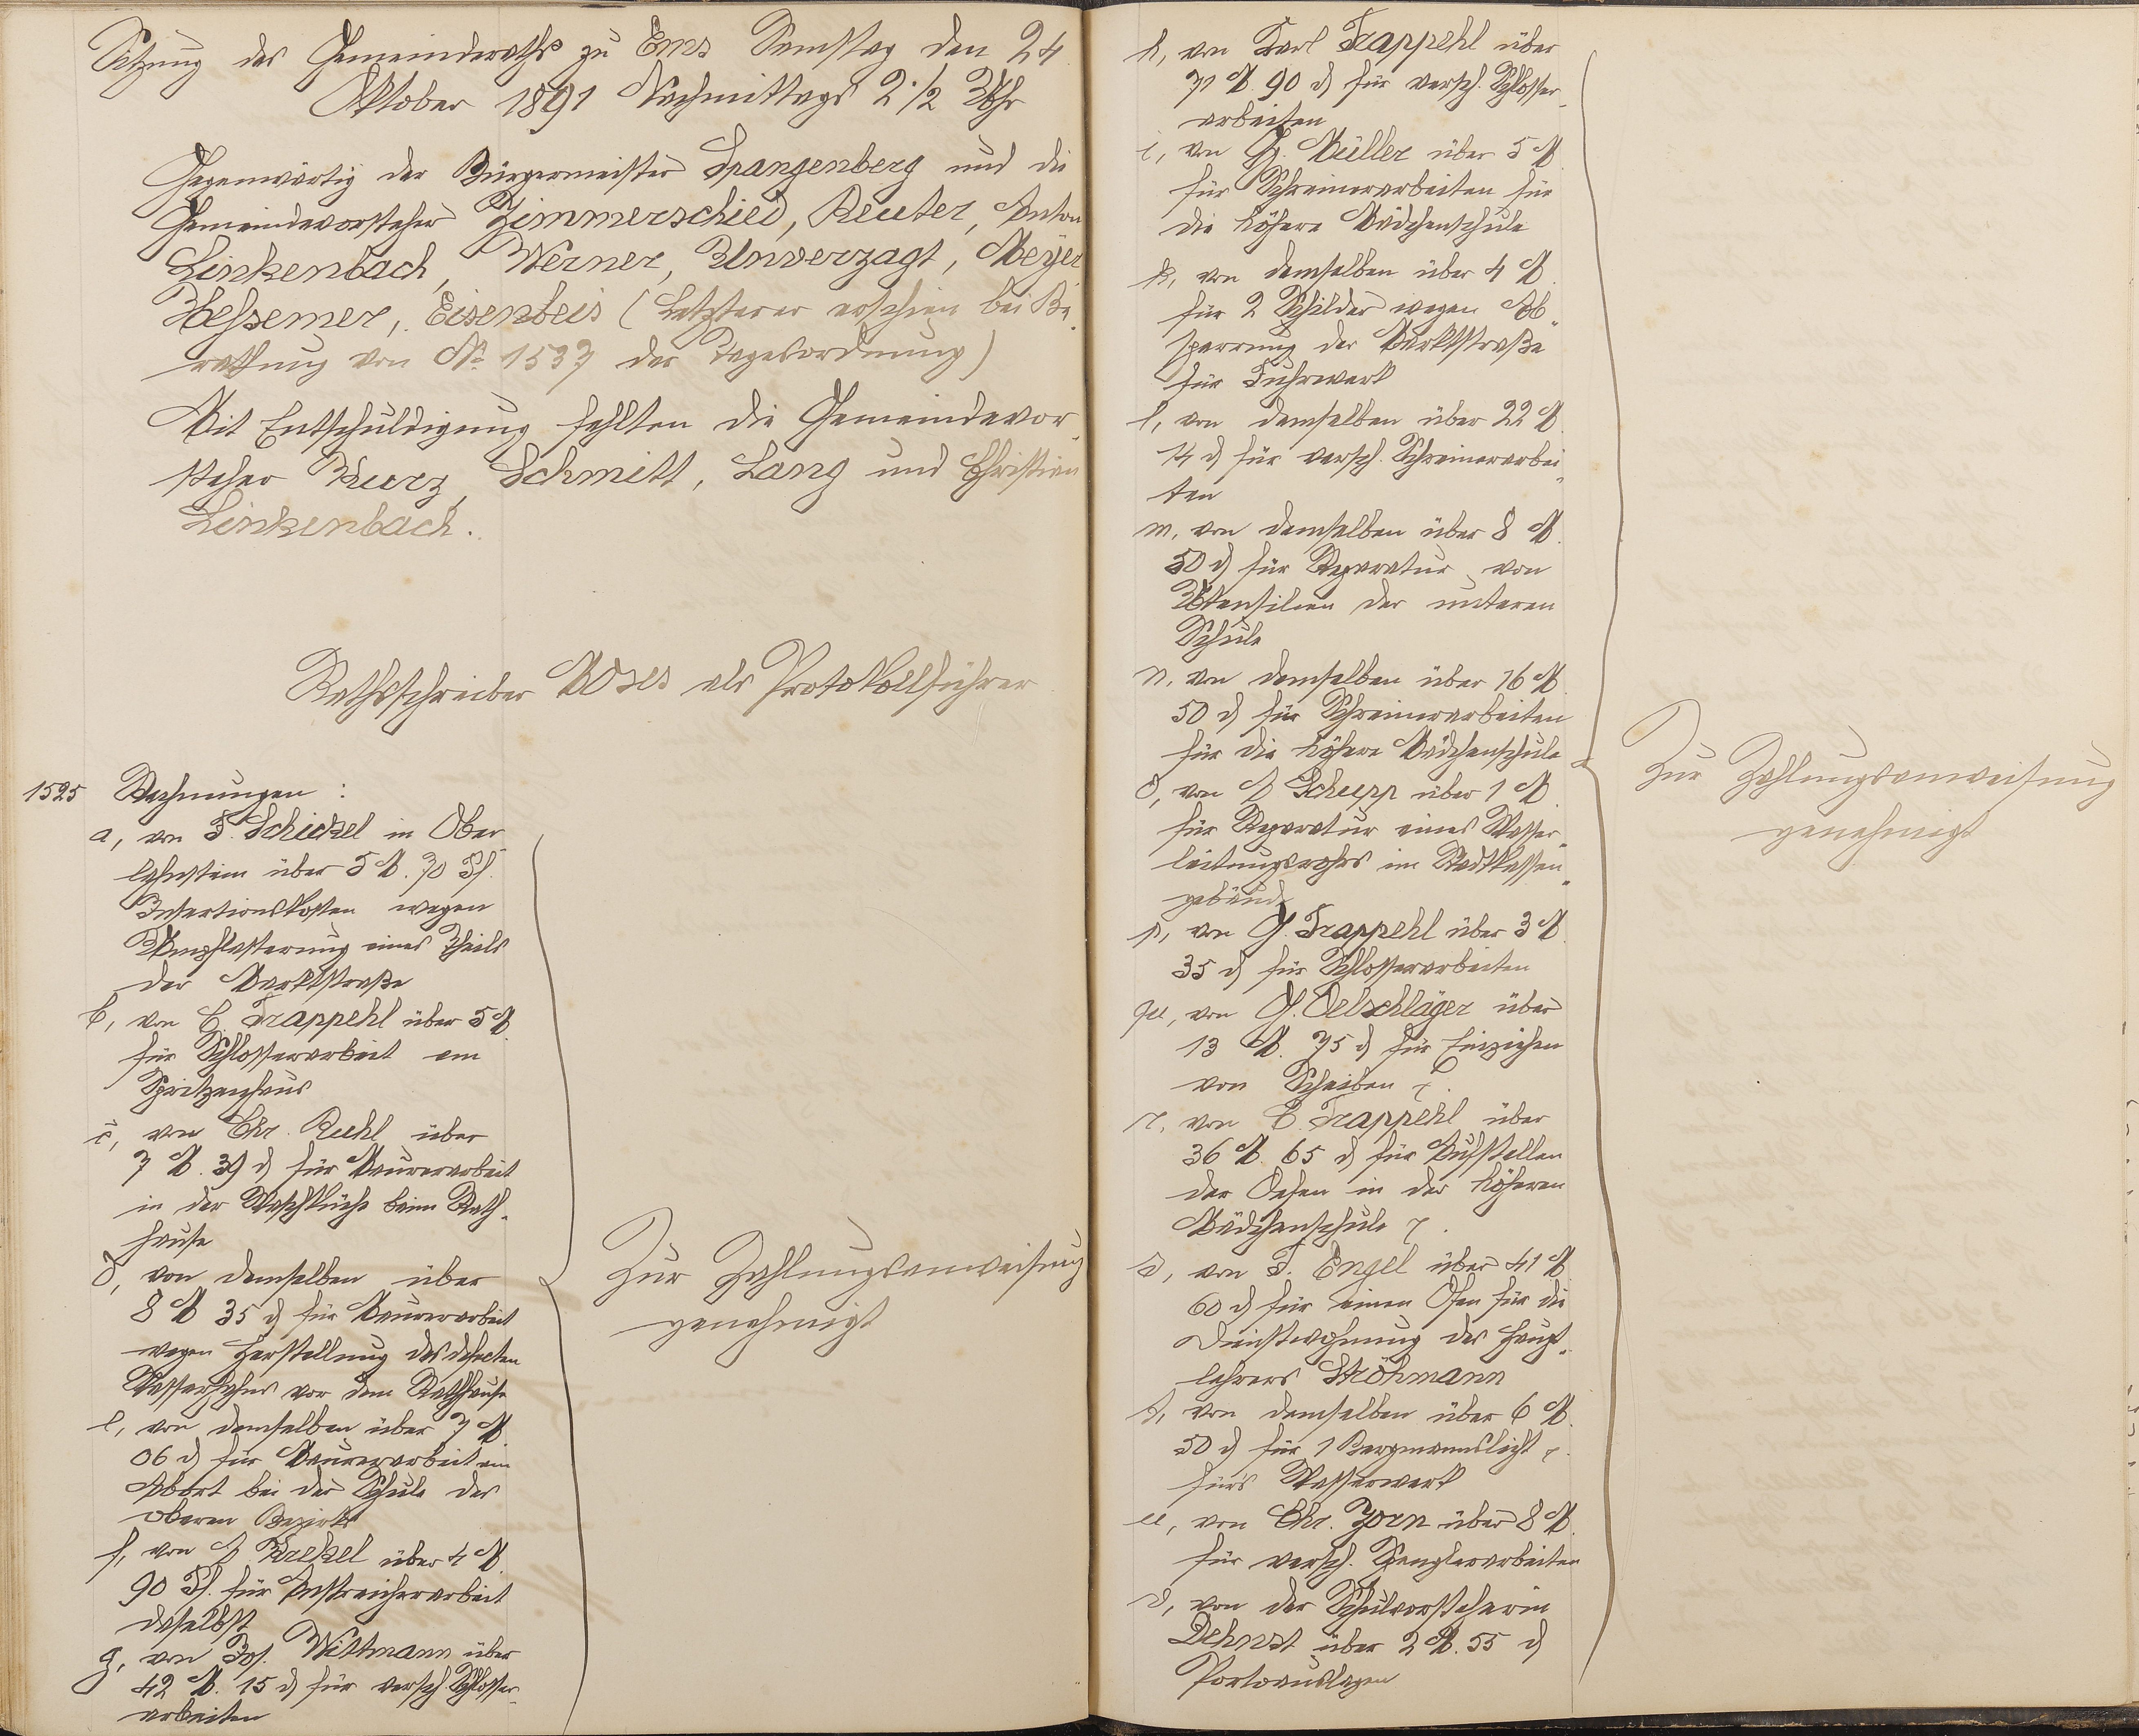 Sitzung des Gemeinderaths zu Ems Samstag den 24
Oktober 1891 Nachmittags 2 1/2 Uhr
Gegenwärtig der Bürgermeister Spangenberg und die
Gemeindevorsteher Zimmerschied, Reuter, Anton
Linkenbach, Werner, Unverzagt, Meyer
Hessemer, Eisenbeis (Letzterer erschien bei Be-
rathung von No 1537 der Tagesordnung)
Mit Entschuldigung fehlten die Gemeindevor-
steher Kurz, Schmitt, Lang und Christian
Linkenbach.
Rathsschreiber Moses als Protokollführer
1525 Rechnungen:
a, von F. Schickel in Ober
lahnstein über 5 M. 70 Pf.
Insertionskosten wegen
Umpflasterung eines Theils
der Marktstraße
b, von C. Trappehl über 5 M
für Schlosserarbeit am
Spritzenhaus
c, von Chr. Ruhl über
7 M. 39 d für Maurerarbeit
in der Waschküche beim Rath-
hause
d, von demselben über
8 M 35 d für Maurerarbeit
wegen Herstellung des defecten
Wasserhahns vor dem Rathhause
e, von demselben über 7 M
06 d für Maurerarbeit am
Abort bei der Schule des
oberen Bezirks
f, von A. Krekel über 4 M.
90 Pf. für Anstreicherarbeit
daselbst
g, von Jos. Wittmann über
42 M. 15 d für versch. Schlosser-
arbeiten
Zur Zahlungsanweisung
genehmigt
h, von Karl Trappehl über
71 M. 90 d für versch. Schlosser-
arbeiten
i, von G. Müller über 5 M
für Schreinerarbeiten für
die höhere Mädchenschule
k, von demselben über 4 M.
für 2 Schilder wegen Ab-
sperrung der Marktstraße
für Fuhrwerk
l, von demselben über 22 M.
14 d für versch. Schreinerarbei-
ten
m, von demselben über 8 M.
50 d für Reparatur von
Utensilien der unteren
Schule
n, von demselben über 16 M.
50 d für Schreinerarbeiten
für die höhere Mädchenschule
o, von A Schupp über 1 M
für Reparatur eines Wasser-
leitungsrohrs im Stadtkassen-
gebäude
p, von G. Trappehl über 3 M.
35 d für Schlosserarbeiten
qu, von G. Oelschläger über
13 M. 75 d für Einziehen
von Scheiben p.
r, von C. Trappehl über
36 M. 65 d für Aufstellen
der Oefen in der höheren
Mädchenschule p.
s, von F. Engel über 41 M
60 d für einen Ofen für die
Dienstwohnung des Haupt-
lehrers Ströhmann
t, von demselben über 6 M.
50 d für 1 Bergmannslicht p.
für's Wasserwerk
u, von Chr. Zorn über 8 M.
für versch. Spenglerarbeiten
v, von der Schulvorsteherin
Dehnst über 2 M. 55 d
Portoauslagen
Zur Zahlungsanweisung
genehmigt